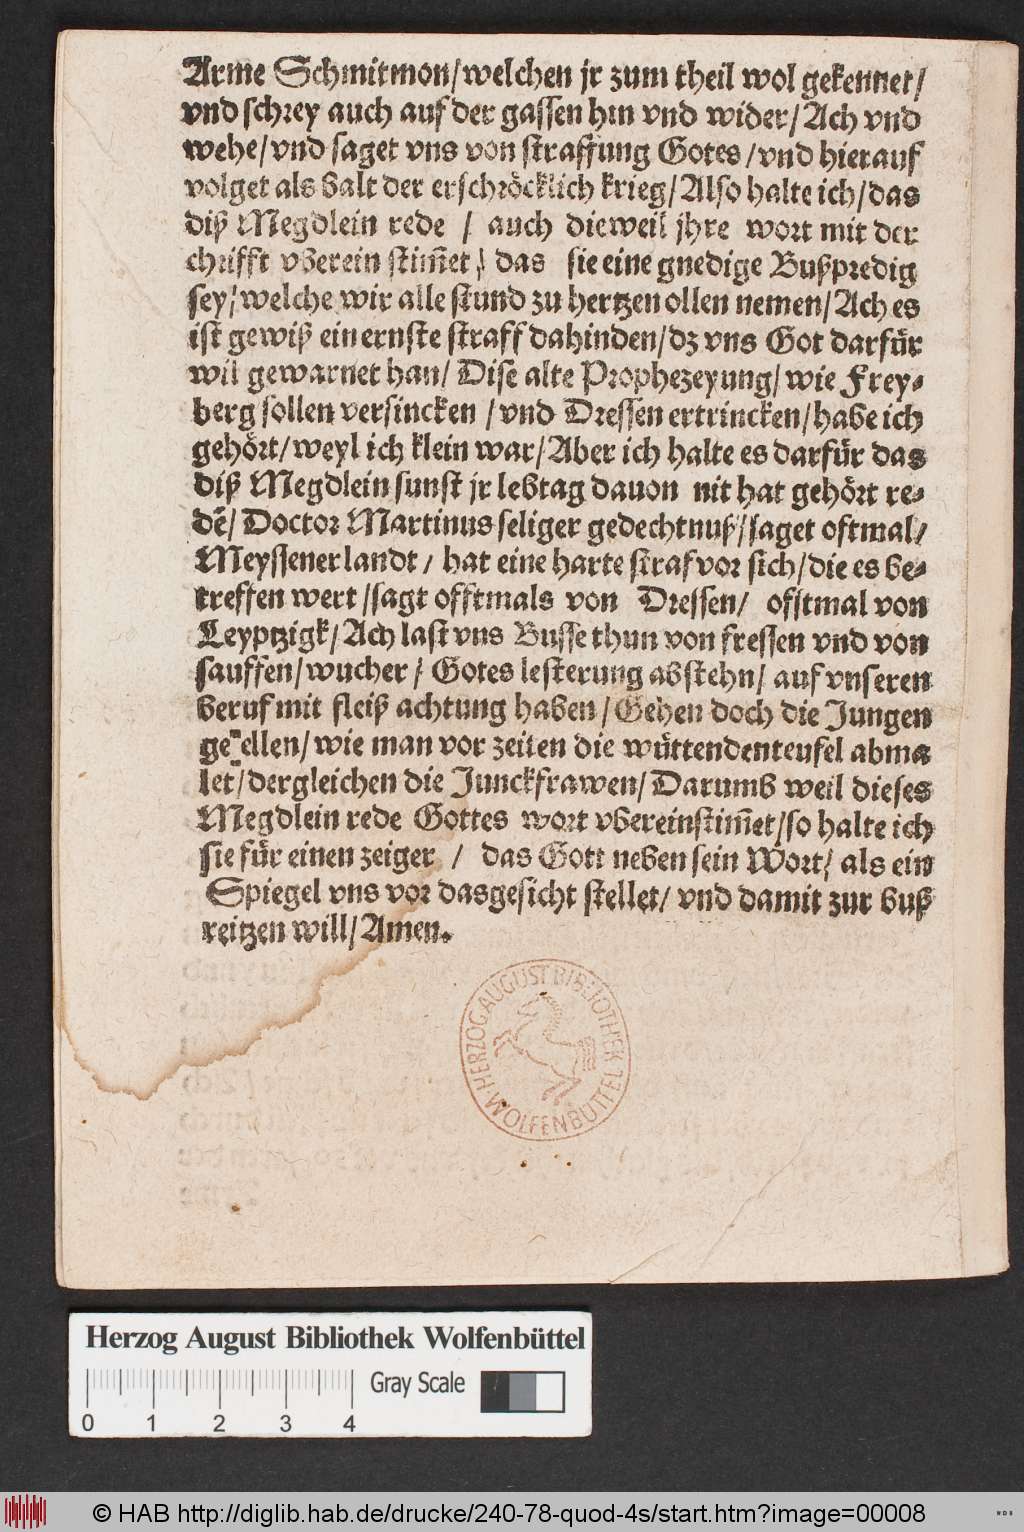 Arme Schmitmon/welchen jr zum theil wol gekennet/
vnd schrey auch auf der gassen hin vnd wider/Ach vnd
wehe/vnd saget vns von straffung Gotes/vnd hierauf
volget als balt der erschröcklich krieg/Also halte ich/das
diß Megdlein rede / auch dieweil jhre wort mit der
chrifft vberein stim̃et/ das sie eine gnedige Bußpredig
sey/welche wir alle stund zu hertzen ollen nemen/Ach es
ist gewiß ein ernste straff dahinden/dz vns Got darfür
wil gewarnet han/ Dise alte Prophezeyung/wie Frey-
berg sollen versincken /vnd Dressen ertrincken/habe ich
gehört/weyl ich klein war/Aber ich halte es darfür das
diß Megdlein sunst jr lebtag dauon nit hat gehört re-
dẽ/Doctor Martinus seliger gedechtnuß/saget oftmal/
Meyssener landt/ hat eine harte straf vor sich/die es be-
treffen wert/sagt offtmals von Dressen/ offtmal von
Leyptzigk/Ach last vns Busse thun von fressen vnd von
sauffen/wucher/ Gotes lesterung abstehn/ auf vnseren
beruf mit fleiß achtung haben/Gehen doch die Jungen
ge ellen/wie man vor zeiten die wüttendenteufel abma
let/dergleichen die Junckfrawen/Darumb weil dieses
Megdlein rede Gottes wort vbereinstim̃et/so halte ich
sie für einen zeiger / das Gott neben sein Wort/als ein
Spiegel vns vor dasgesicht stellet/ vnd damit zur buß
reitzen will/Amen.
HERZOG AUGUST BIBLIOTHEK
WOLFENBÜTTEL
Herzog August Bibliothek Wolfenbüttel
Gray Scale
0 1 2 3 4
© HAB http://diglib.hab.de/drucke/240-78-quod-4s/start.htm?image=00008